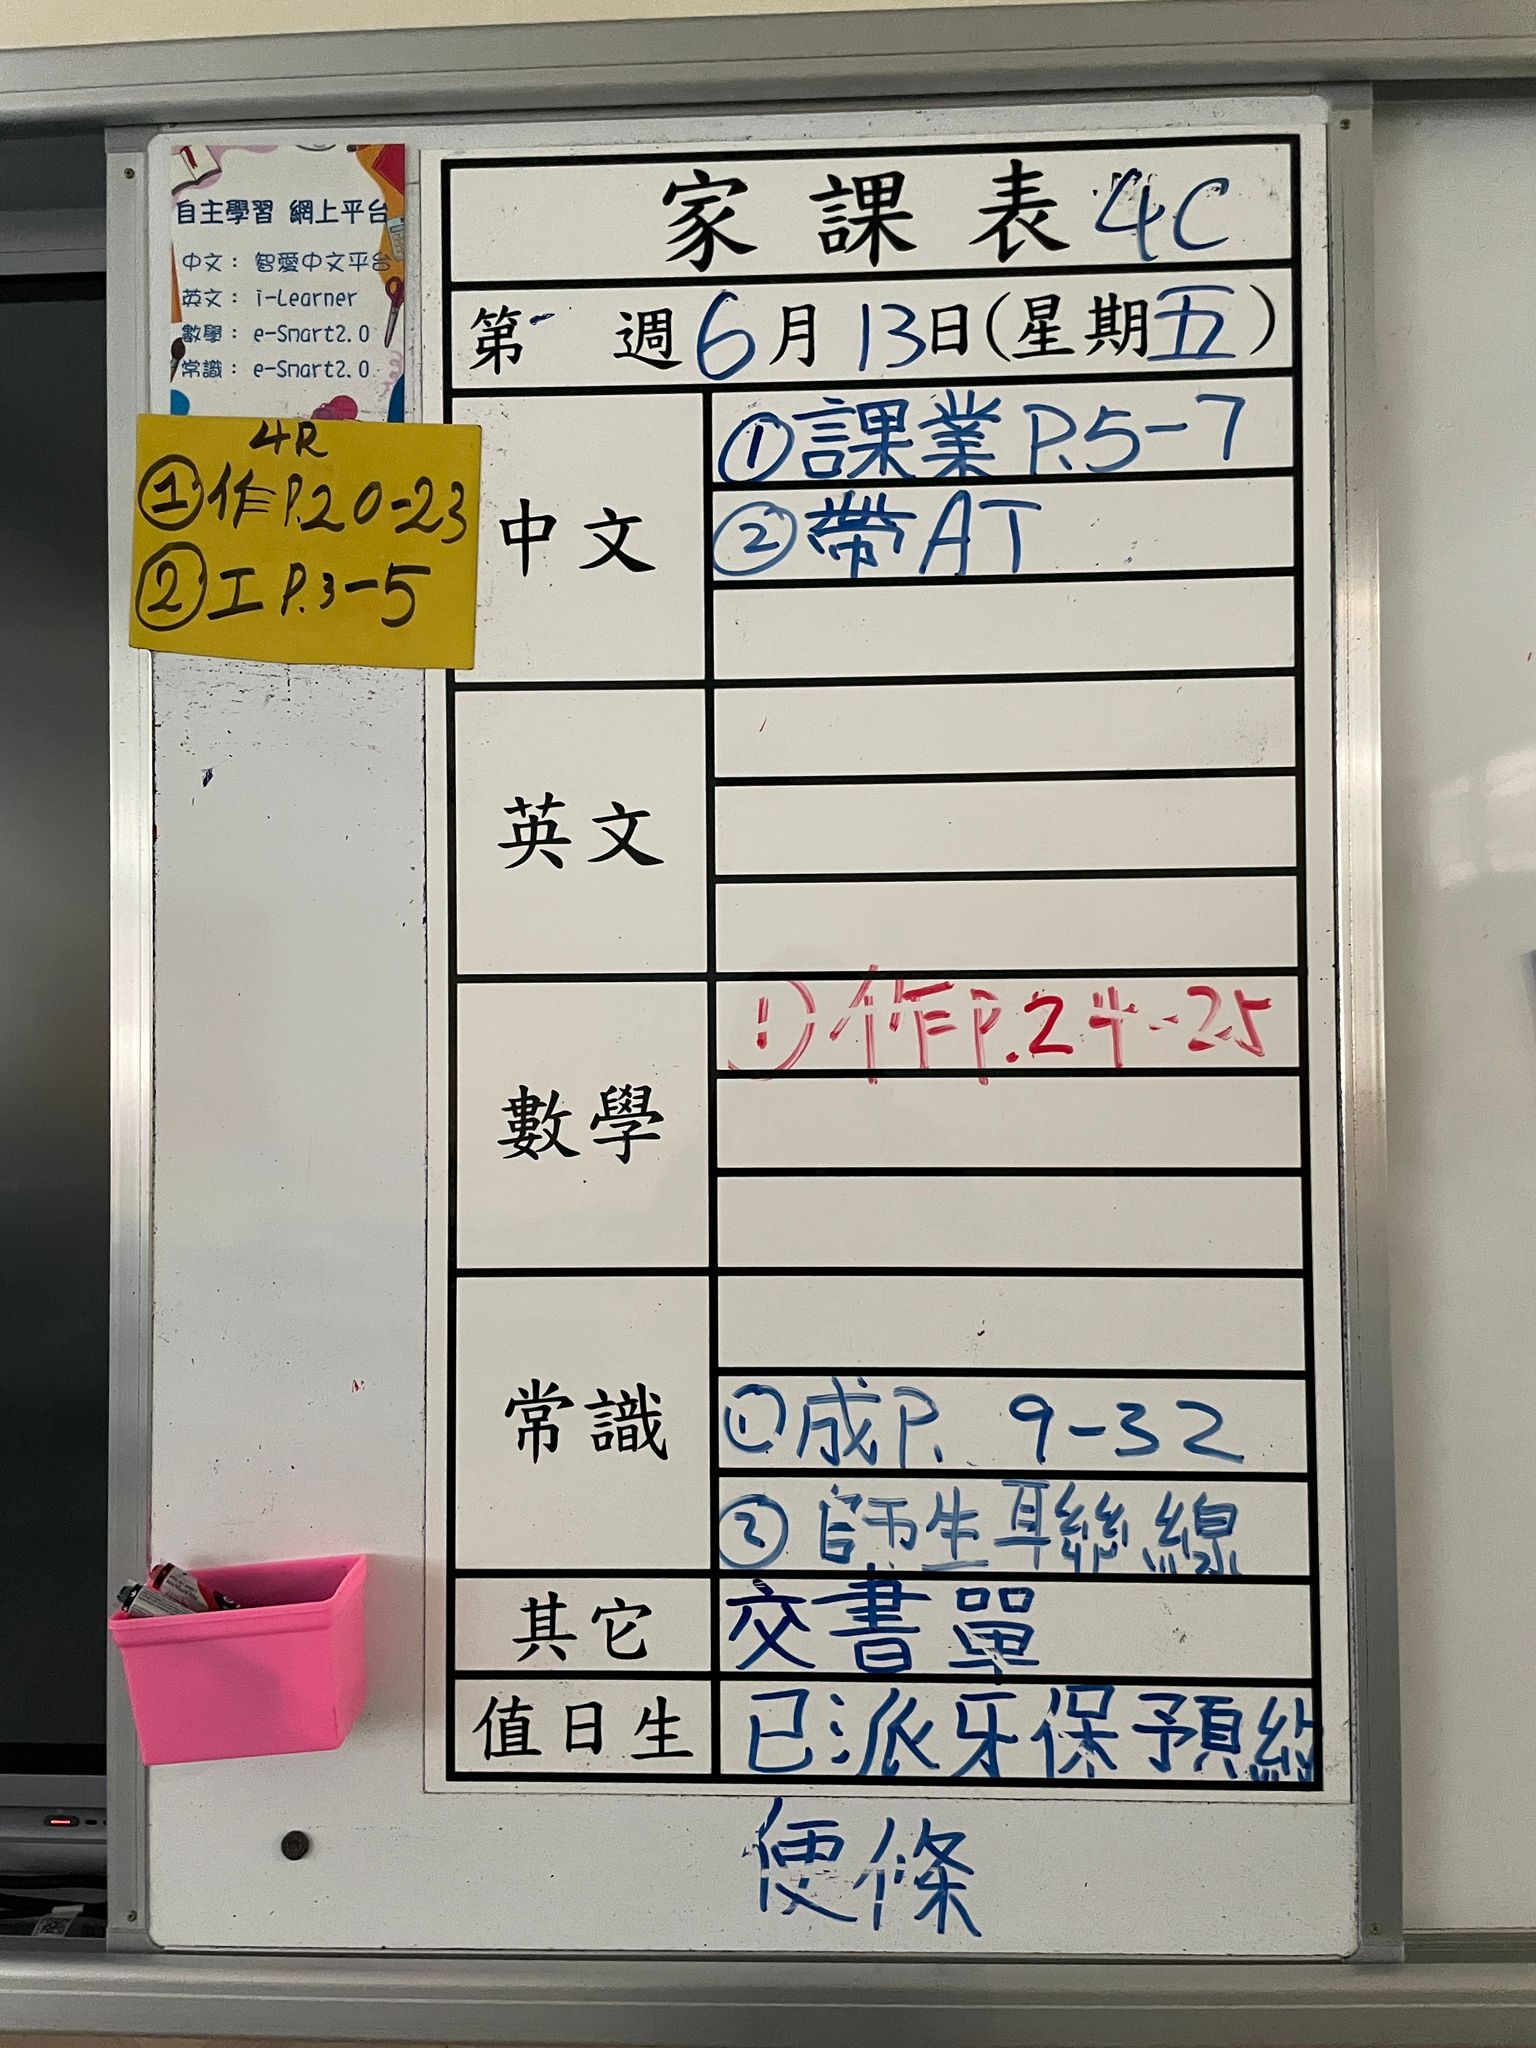 自主學習 網上平台
中文： 智愛中文平台
英文： i-Learner
數學： e-Smart2.0
常識： e-Smart2.0
4R
①作P.20-23
②工P.3-5
家課表 4C
第 週 6月13日(星期五)
中文
①課業 P.5-7
②帶AT
英文
數學
①作P.24-25
常識
①成P. 9-32
②師生聯線
其它
交書單
值日生
已派牙保預約
便條